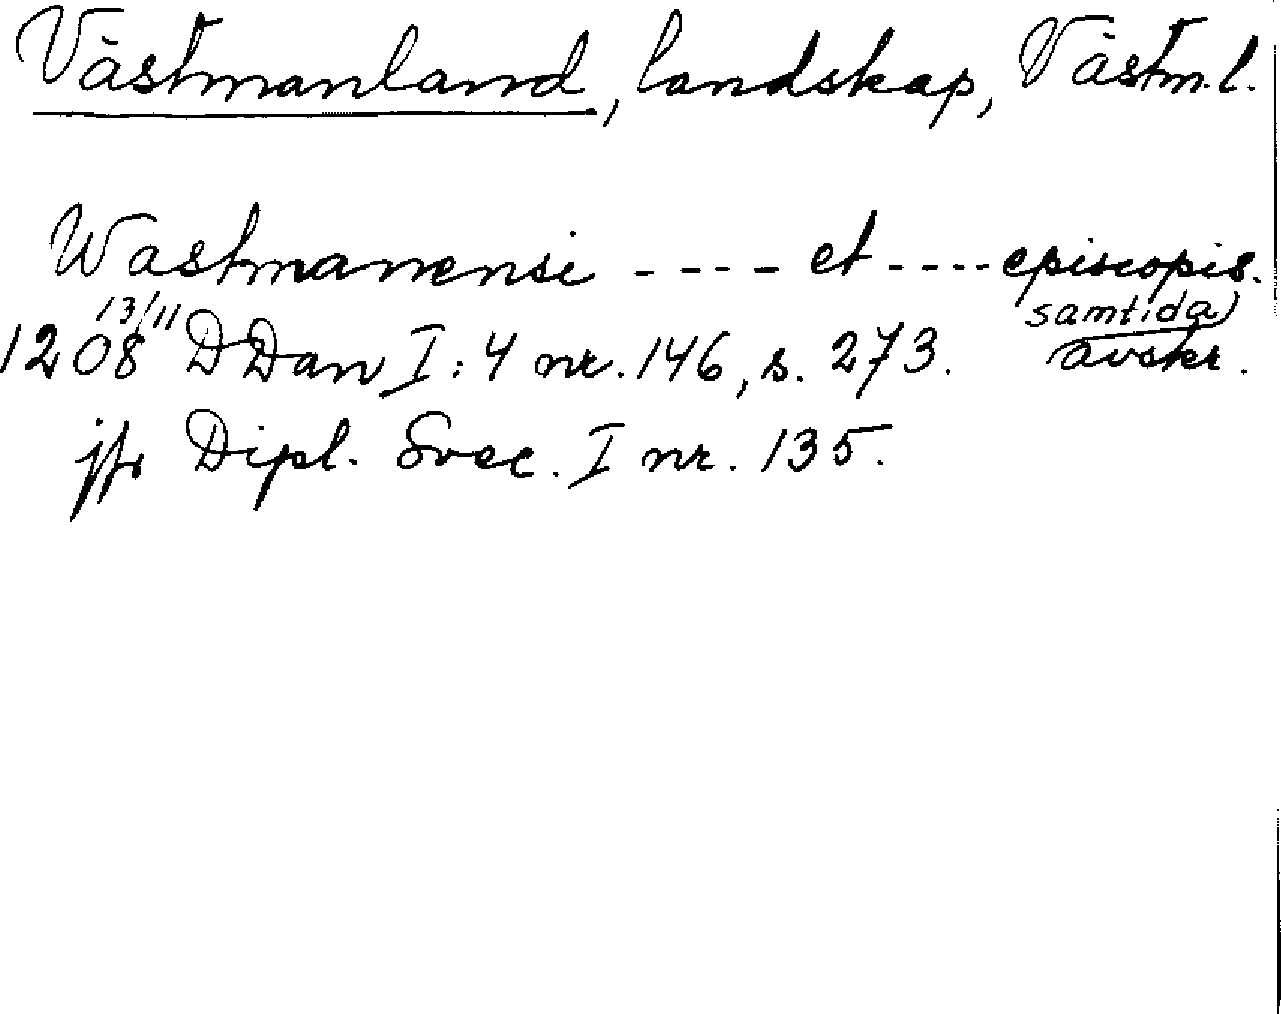 Västmanland, landskap, Västm.l.
Wastmanensi ---- et ---- episcopis.
1208 13/11 DDan I:4 nr. 146, s. 273. samtida avskr.
jfr Dipl. Svec. I nr. 135.